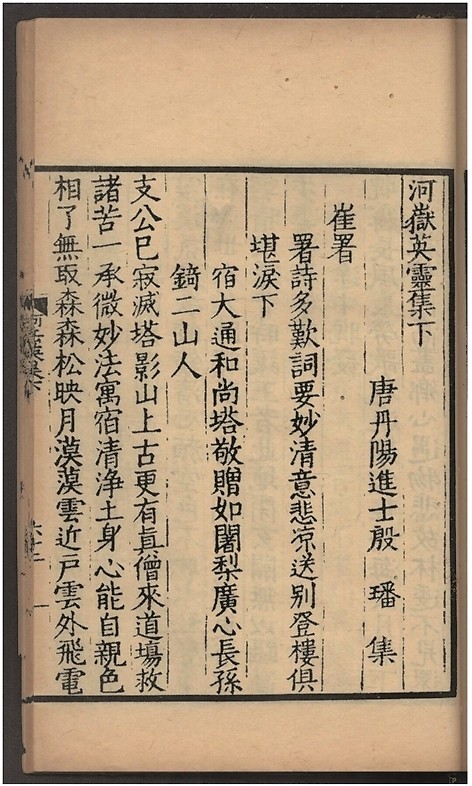 河嶽英靈集下
唐丹陽進士殷 璠 集
崔署
署詩多歎詞要妙清意悲凉送别登樓俱
堪淚下
宿大通和尚塔敬贈如闍梨廣心長孫
錡二山人
支公巳寂滅塔影山上古更有真僧來道場救
諸苦一承微妙法寓宿清浄土身心能自親色
相了無取森森松映月漠漠雲近戸雲外飛電